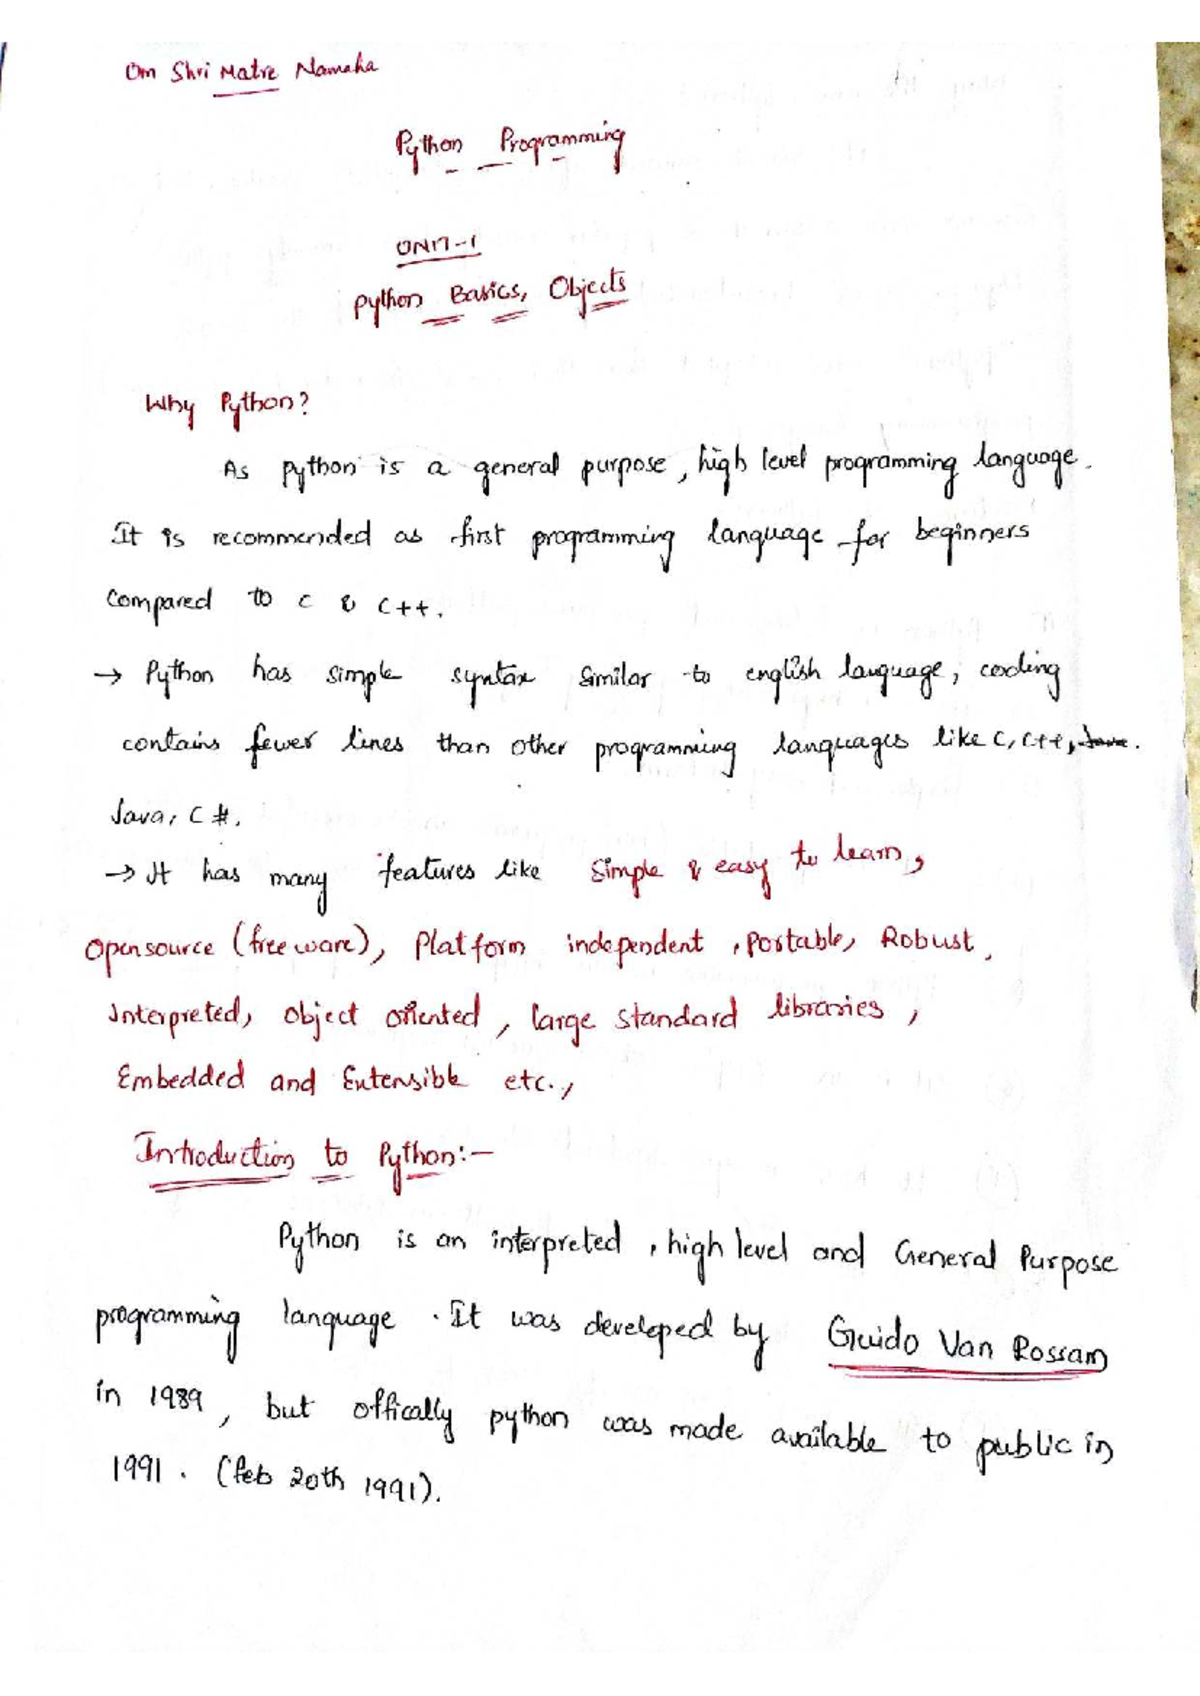 Om Shri Matre Namaha
Python Programming
UNIT-1
Python Basics, Objects
Why Python?
As python is a general purpose, high level programming language.
It is recommended as first programming language for beginners
compared to c & c++.
→ Python has simple syntax similar to english language, coding
contains fewer lines than other programming languages like c, c++, Java.
Java, C#.
→ It has many features like Simple & easy to learn,
Opensource (freeware), Platform independent, Portable, Robust,
Interpreted, Object oriented, large standard libraries,
Embedded and Extensible etc.,
Introduction to Python:-
Python is an interpreted, high level and General Purpose
programming language. It was developed by Guido Van Rossam
in 1989, but offically python was made available to public in
1991. (feb 20th 1991).